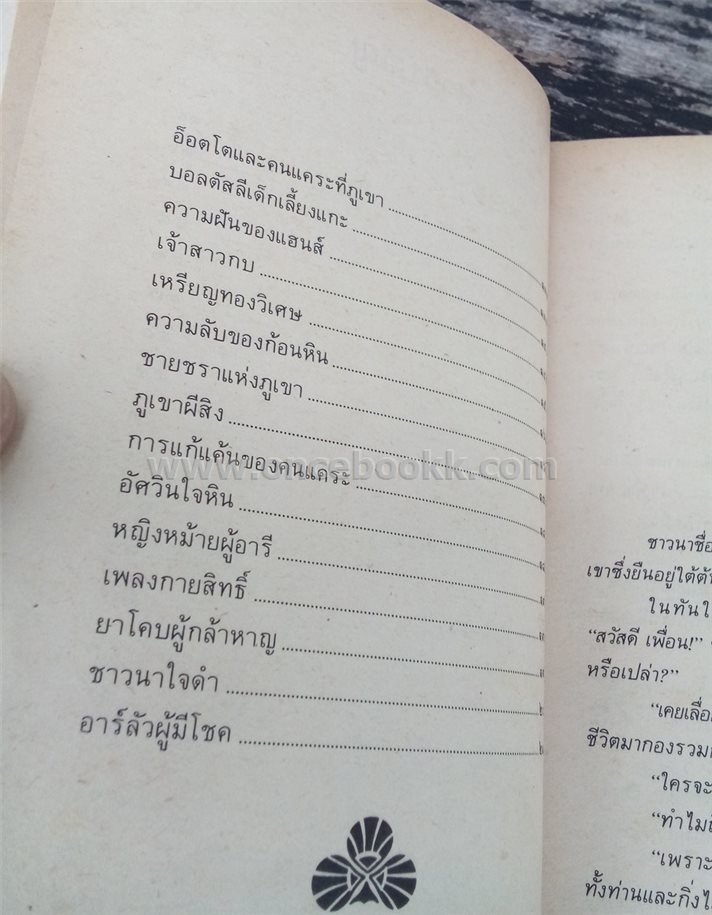 อ็อตโตและคนแคระที่ภูเขา
บอลตัสลีเด็กเลี้ยงแกะ
ความฝันของแฮนส์
เจ้าสาวกบ
เหรียญทองวิเศษ
ความลับของก้อนหิน
ชายชราแห่งภูเขา
ภูเขาผีสิง
การแก้แค้นของคนแคระ
อัศวินใจหิน
หญิงหม้ายผู้อารี
เพลงกายสิทธิ์
ยาโคบผู้กล้าหาญ
ชาวนาใจดำ
อาร์ลัวผู้มีโชค
www.oncebookk.com
ชาวนาชื่อ
เขาซึ่งยืนอยู่ใต้ต้
ในทันใ
“สวัสดี เพื่อน!”
หรือเปล่า?”
“เคยเลื่อ
ชีวิตมากองรวม
“ใครจะ
“ทำไม
“เพราะ
ทั้งท่านและกิ่งไ